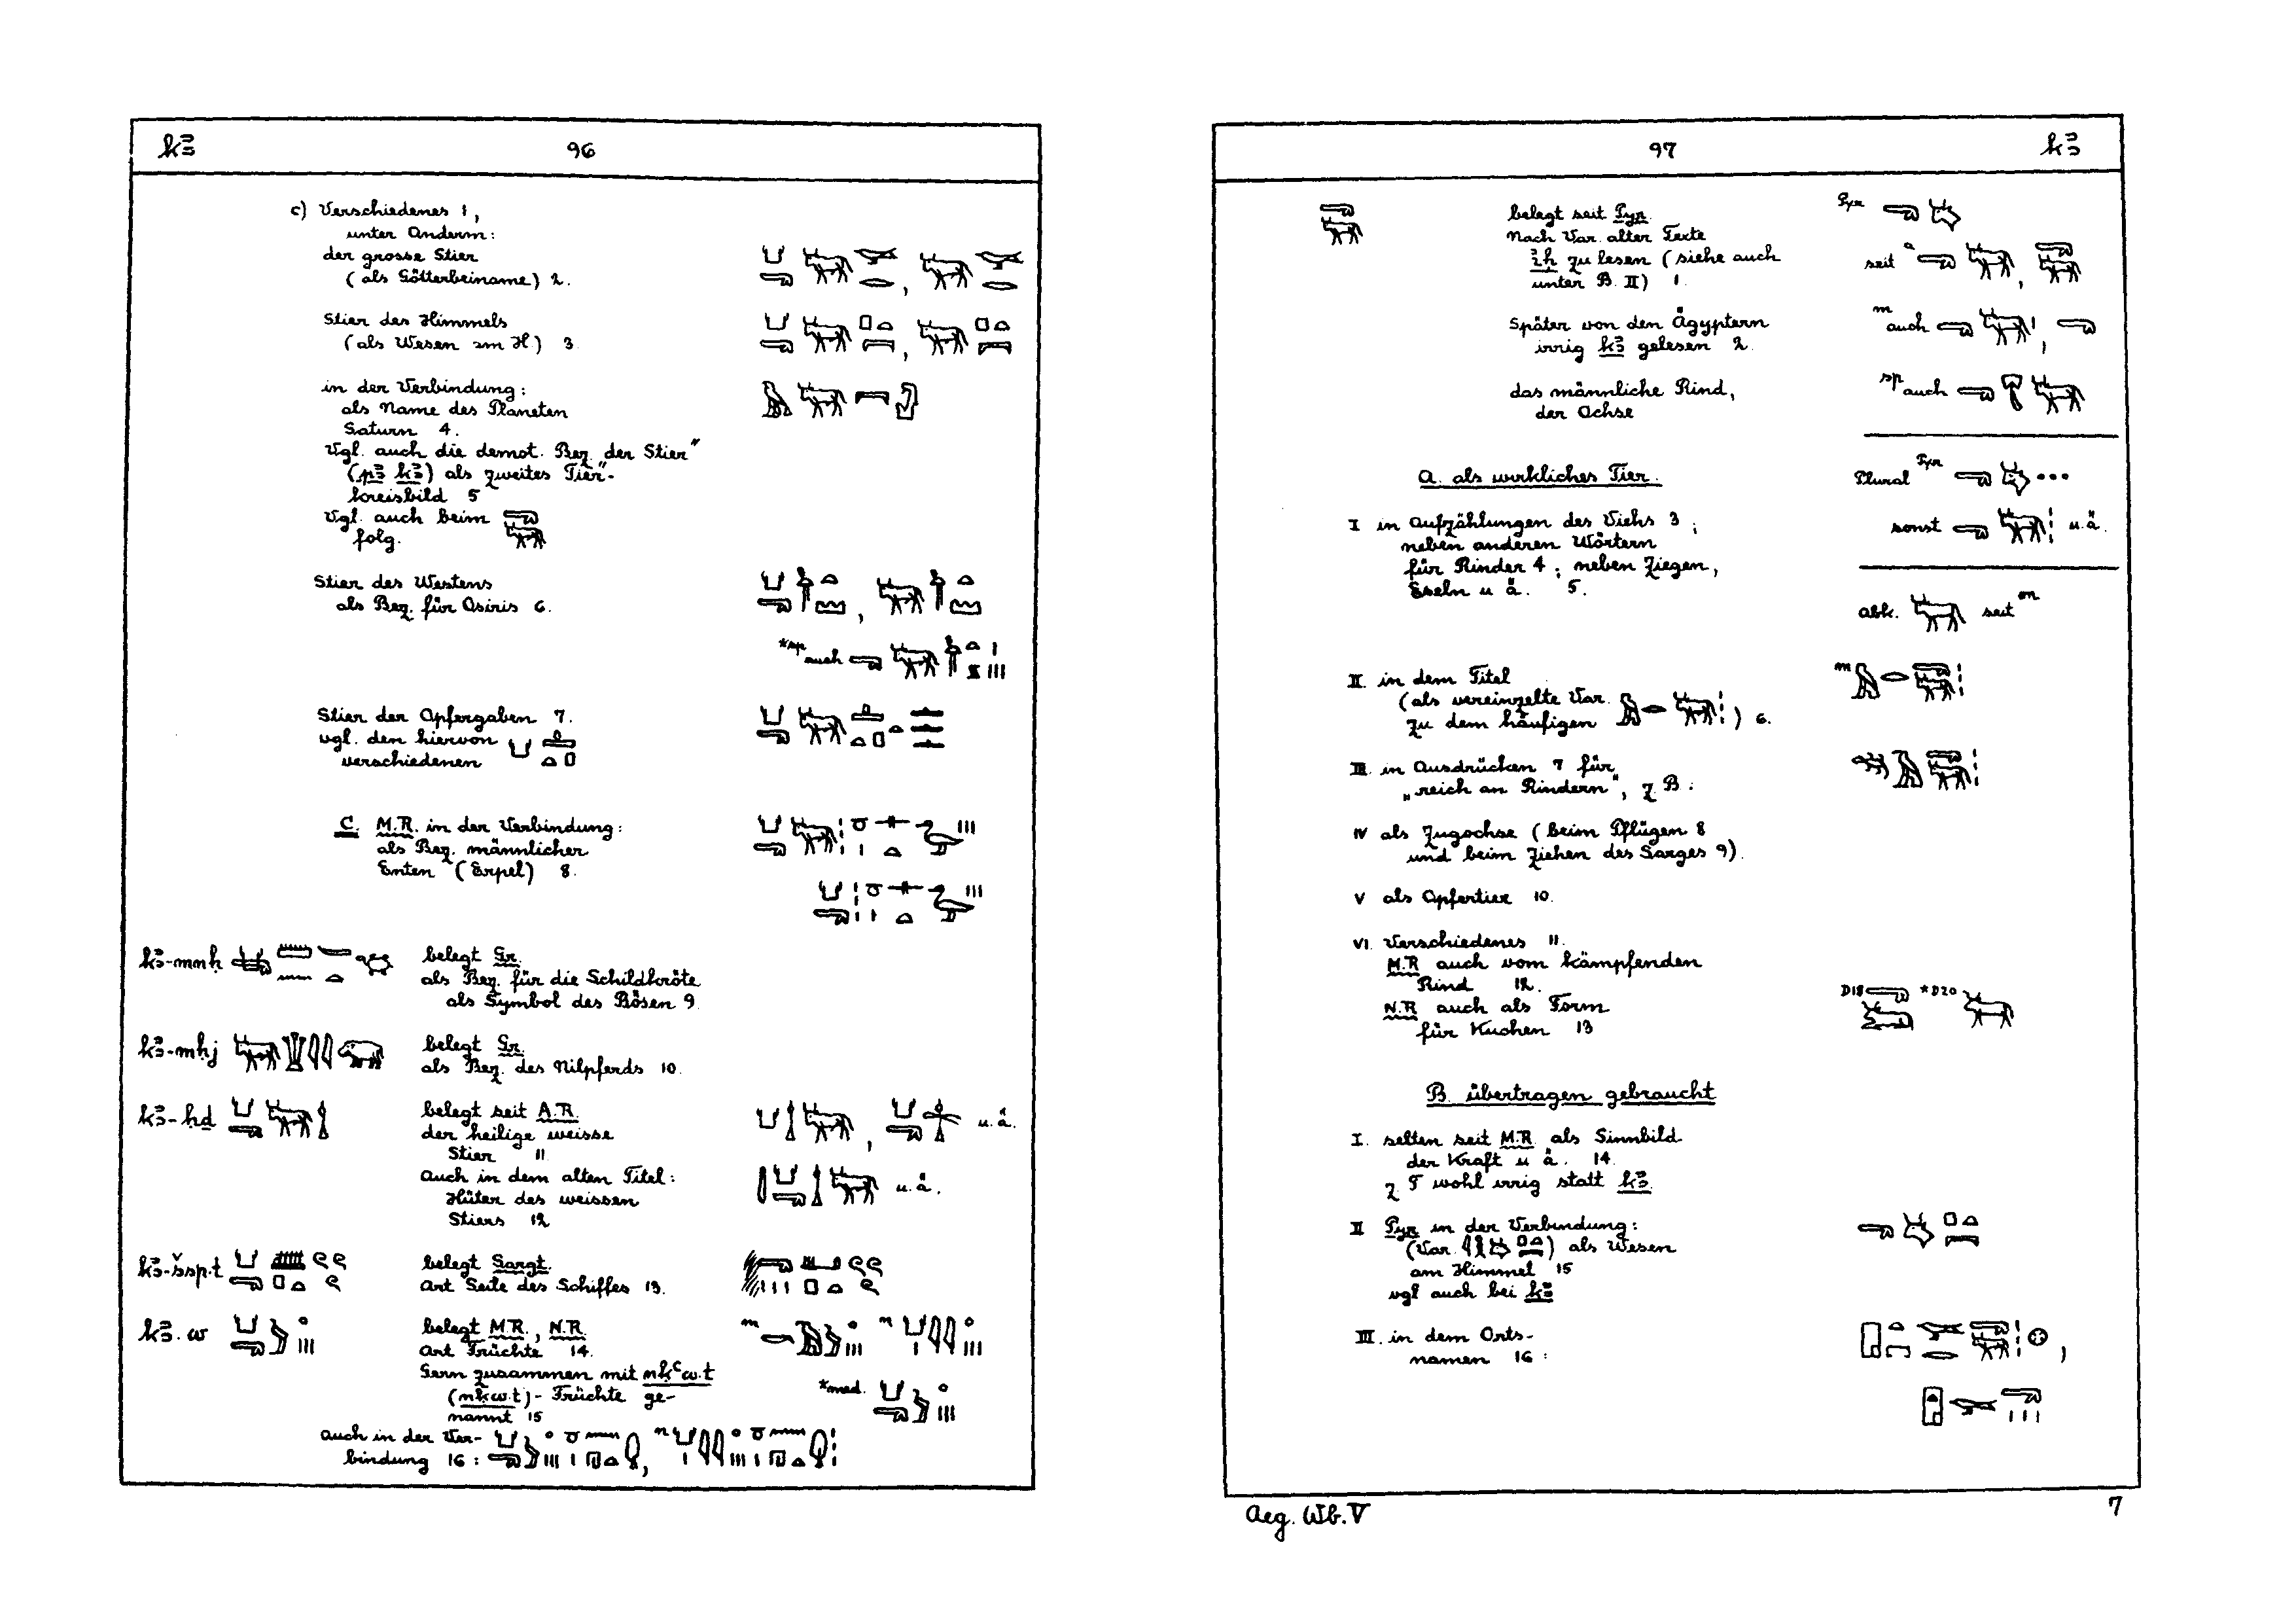 k3 96
c) Verschiedenes 1,
unter Anderm:
der grosse Stier
(als Götterbeiname) 2.
Stier des Himmels
(als Wesen am H) 3
in der Verbindung:
als Name des Planeten
Saturn 4.
Vgl. auch die demot. Bez. der Stier"
(p3 k3) als zweites Tier"-
kreisbild 5
Vgl. auch beim
folg.
Stier des Westens
als Bez. für Osiris 6.
*sp auch
Stier der Opfergaben 7.
vgl. den hiervon
verschiedenen
C. M.R. in der Verbindung:
als Bez. männlicher
Enten (Erpel) 8.
k3-mnḥ belegt Gr.
als Bez. für die Schildkröte
als Symbol des Bösen 9
k3-mḥj belegt Gr.
als Bez. des Nilpferds 10.
k3-ḥḏ belegt seit A.R. u.ä.
der heilige weisse
Stier 11
Auch in dem alten Titel: u.ä.
Hüter des weissen
Stiers 12
k3-šsp.t belegt Sargt.
Art Seile des Schiffes 13.
k3.w belegt M.R., N.R. m n
Art Früchte 14.
Gern zusammen mit nḳꜥw.t
(nḳw.t)-Früchte ge- *med.
nannt 15
auch in der Ver- n
bindung 16:
97 k3
belegt seit Pyr. Pyr
Nach Var. alter Texte
iḥ zu lesen (siehe auch seit a
unter B. II) 1.
Später von den Ägyptern m auch
irrig k3 gelesen 2.
das männliche Rind, sp auch
der Ochse
A. als wirkliches Tier. Plural Pyr
I in Aufzählungen des Viehs 3; sonst u.ä.
neben anderen Wörtern
für Rinder 4; neben Ziegen,
Eseln u ä. 5. abk. seit m
II. in dem Titel m
(als vereinzelte Var.
zu dem häufigen ) 6.
III. in Ausdrücken 7 für
„reich an Rindern", z B:
IV als Zugochse (beim Pflügen 8
und beim Ziehen des Sarges 9).
V als Opfertier 10.
VI. Verschiedenes 11.
M.R auch vom kämpfenden
Rind 12.
N.R auch als Form D18 *D20
für Kuchen 13
B. übertragen gebraucht
I. selten seit M.R. als Sinnbild
der Kraft u ä. 14.
z T wohl irrig statt k3.
II Pyr in der Verbindung:
(Var. ) als Wesen
am Himmel 15
vgl auch bei k3
III. in dem Orts-
namen 16:
Aeg. Wb. V 7